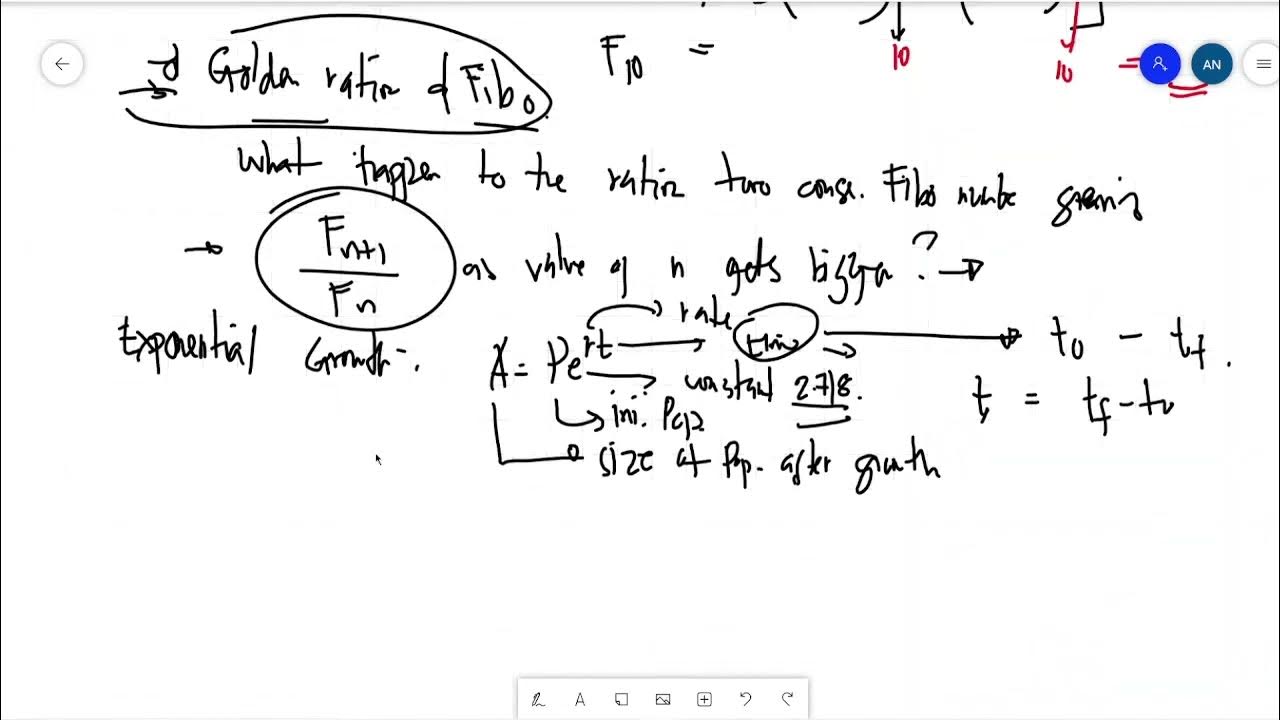 F10 =
10
10
=
AN
→ Golden ratio & Fibo.
What happen to the ratio two conse. Fibo numbe
→ Fn+1 / Fn as value of n gets bigger ? →
Exponential Growth -.
A = Pe^rt
rate
time → t0 - tf.
constant 2.718.
t = tf - t0
ini. Pop
size of Pop. after growth